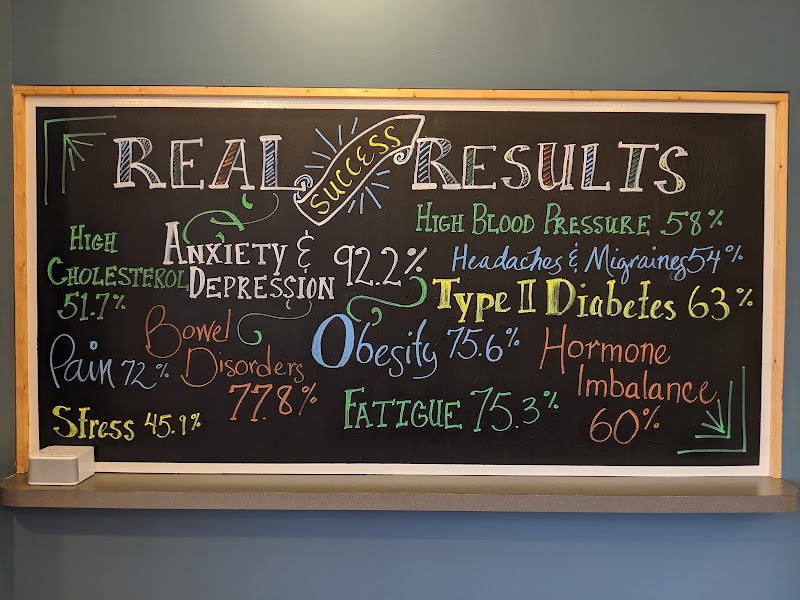 REAL SUCCESS RESULTS
HIGH BLOOD PRESSURE 58%
HIGH
CHOLESTEROL
51.7%
ANXIETY &
DEPRESSION
92.2%
Headaches & Migraines 54%
Type II Diabetes 63%
Pain 72%
Bowel
Disorders
77.8%
Obesity 75.6%
Hormone
Imbalance
60%
Stress 45.9%
FATIGUE 75.3%